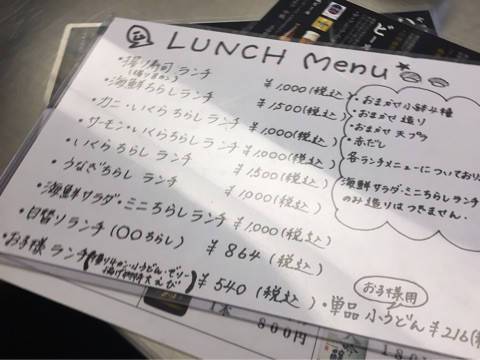 LUNCH Menu
・握り寿司ランチ ¥1,000(税込)
・海鮮ちらしランチ ¥1,500(税込)
・カニ・いくらちらしランチ ¥1,000(税込)
・サーモン・いくらちらしランチ ¥1,000(税込)
・いくらちらしランチ ¥1,500(税込)
・うなぎちらしランチ ¥1,000(税込)
・海鮮サラダ・ミニちらしランチ ¥1,000(税込)
・日替りランチ(〇〇ちらし) ¥864(税込)
・お子様ランチ ¥540(税込)
・おまかせ小鉢4種
・おまかせ造り
・おまかせ天プラ
・赤だし
各ランチメニューについており
海鮮サラダ・ミニちらしランチ
のみ造りはつきません。
お子様用
・単品 小うどん ¥216(税
800円